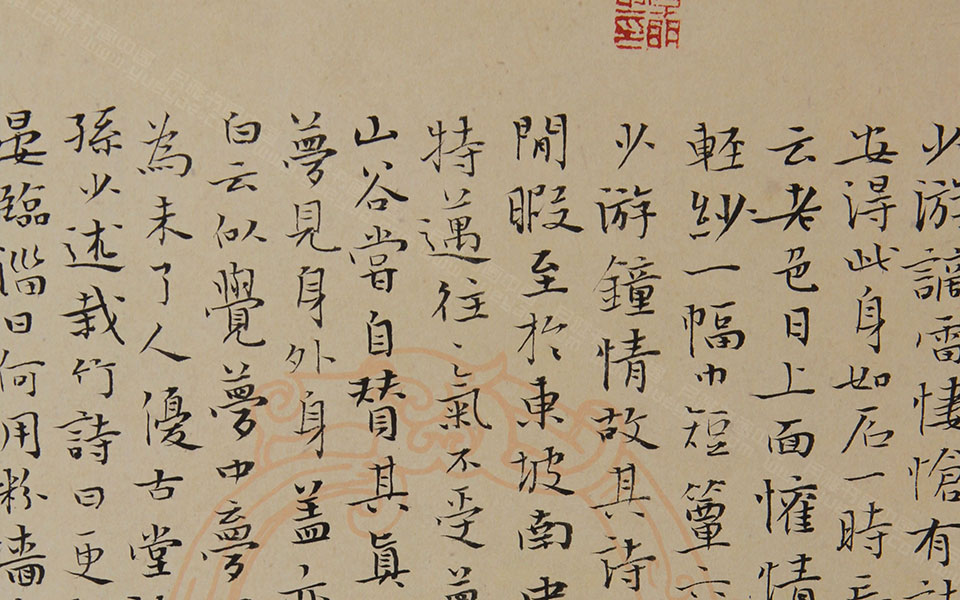 少游謫雷悽愴有詩
安得此身如石一時
云老色日上面懽情
輕紗一幅巾短簟六
少游鐘情故其詩
閒暇至於東坡南中
特邁往之氣不受夢
山谷嘗自贊其真
夢見身外身蓋亦
白云似覺夢中夢
為未了人優古堂詩
孫少述栽竹詩曰更
晏臨淄曰何用粉牆